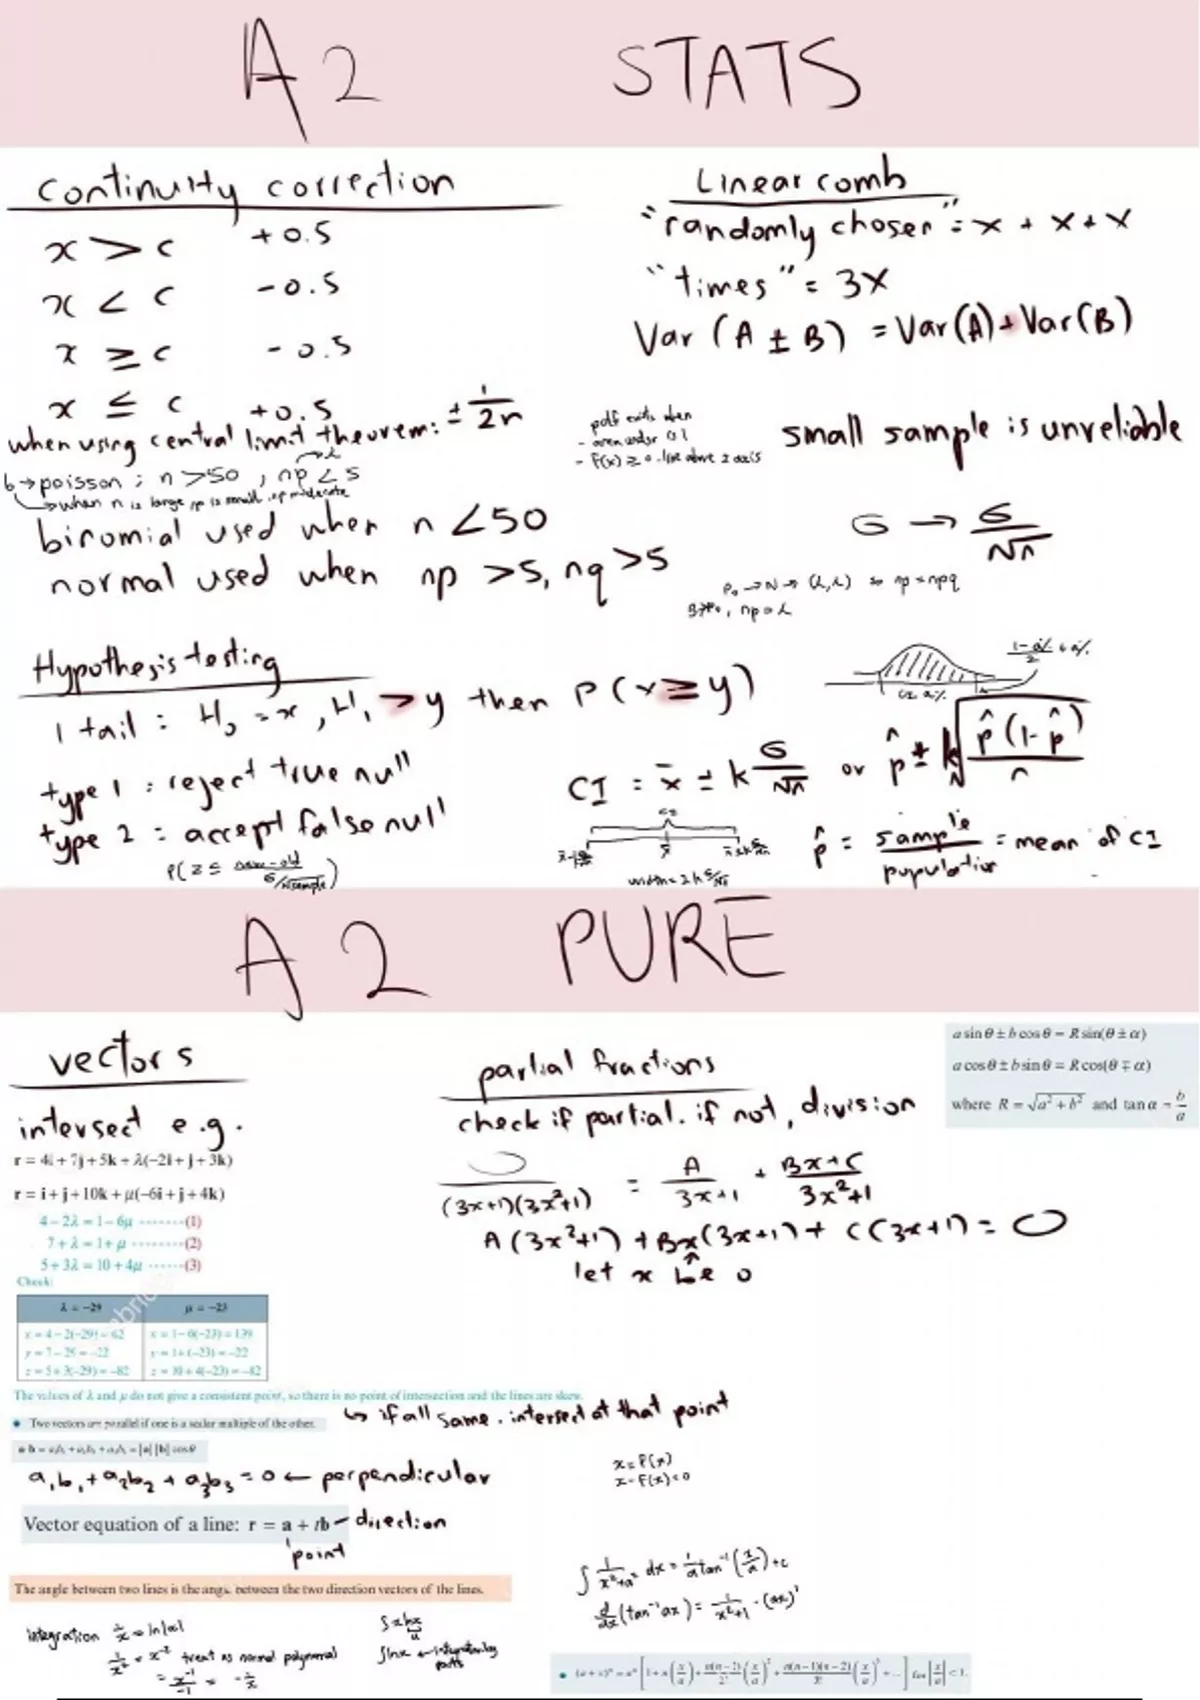 A2 STATS
continuity correction
x > c +0.5
x < c -0.5
x ≥ c -0.5
x ≤ c +0.5
when using central limit theorem: ± 1/2n
b→poisson: n>50, np<5
→λ
↳when n is large, p is small, np moderate
binomial used when n<50
normal used when np >5, nq >5
Linear comb
"randomly chosen" = x + x + x
"times" = 3X
Var (A ± B) = Var(A)+Var(B)
pdf exists when
- area under is 1
- f(x) ≥ 0. line above x axis
small sample is unreliable
σ → σ/√n
Po → N → (λ,λ) so np=npq
B→Po, np=λ
Hypothesis testing
1 tail: H₀ = x, H₁ > y then P(x≥y)
type 1: reject true null
type 2: accept false null
P(Z ≤ (new-old)/(σ/√sample))
CI = x̄ ± k σ/√n or p̂ ± k √(p̂(1-p̂)/n)
width = 2k σ/√n
p̂ = sample/population = mean of CI
A2 PURE
vectors
intersect e.g.
r = 4i + 7j + 5k + λ(−2i + j + 3k)
r = i + j + 10k + μ(−6i + j + 4k)
4 − 2λ = 1 − 6μ -------(1)
7 + λ = 1 + μ --------(2)
5 + 3λ = 10 + 4μ ------(3)
Check:
λ = −29 μ = −23
x = 4 − 2(−29) = 62 x = 1 − 6(−23) = 139
y = 7 − 29 = −22 y = 1 + (−23) = −22
z = 5 + 3(−29) = −82 z = 10 + 4(−23) = −82
The values of λ and μ do not give a consistent point, so there is no point of intersection and the lines are skew.
↳ if all same. intersect at that point
• Two vectors are parallel if one is a scalar multiple of the other.
a·b = a₁b₁ + a₂b₂ + a₃b₃ = |a| |b| cosθ
a₁b₁ + a₂b₂ + a₃b₃ = 0 ← perpendicular
Vector equation of a line: r = a + tb – direction
point
The angle between two lines is the angle between the two direction vectors of the lines.
integration 1/x = ln|x|
1/x² = x⁻² treat as normal polynomial
= x⁻¹/-1 = -1/x
∫lnx ← integration by parts
partial fractions
check if partial. if not, division
/(3x+1)(3x²+1) = A/3x+1 + Bx+C/3x²+1
A(3x²+1) + Bx(3x+1) + C(3x+1) =
let x be 0
a sin θ ± b cos θ = R sin(θ ± α)
a cos θ ± b sin θ = R cos(θ ∓ α)
where R = √a² + b² and tan α = b/a
x = F(x)
x - F(x) = 0
∫ 1/x²+a² dx = 1/a tan⁻¹(x/a) + c
d/dx (tan⁻¹ ax) = 1/x²+1 · (ax)'
• (a + x)ⁿ = aⁿ [1 + n(x/a) + n(n−1)/2! (x/a)² + n(n−1)(n−2)/3! (x/a)³ + ...] for |x/a| < 1.